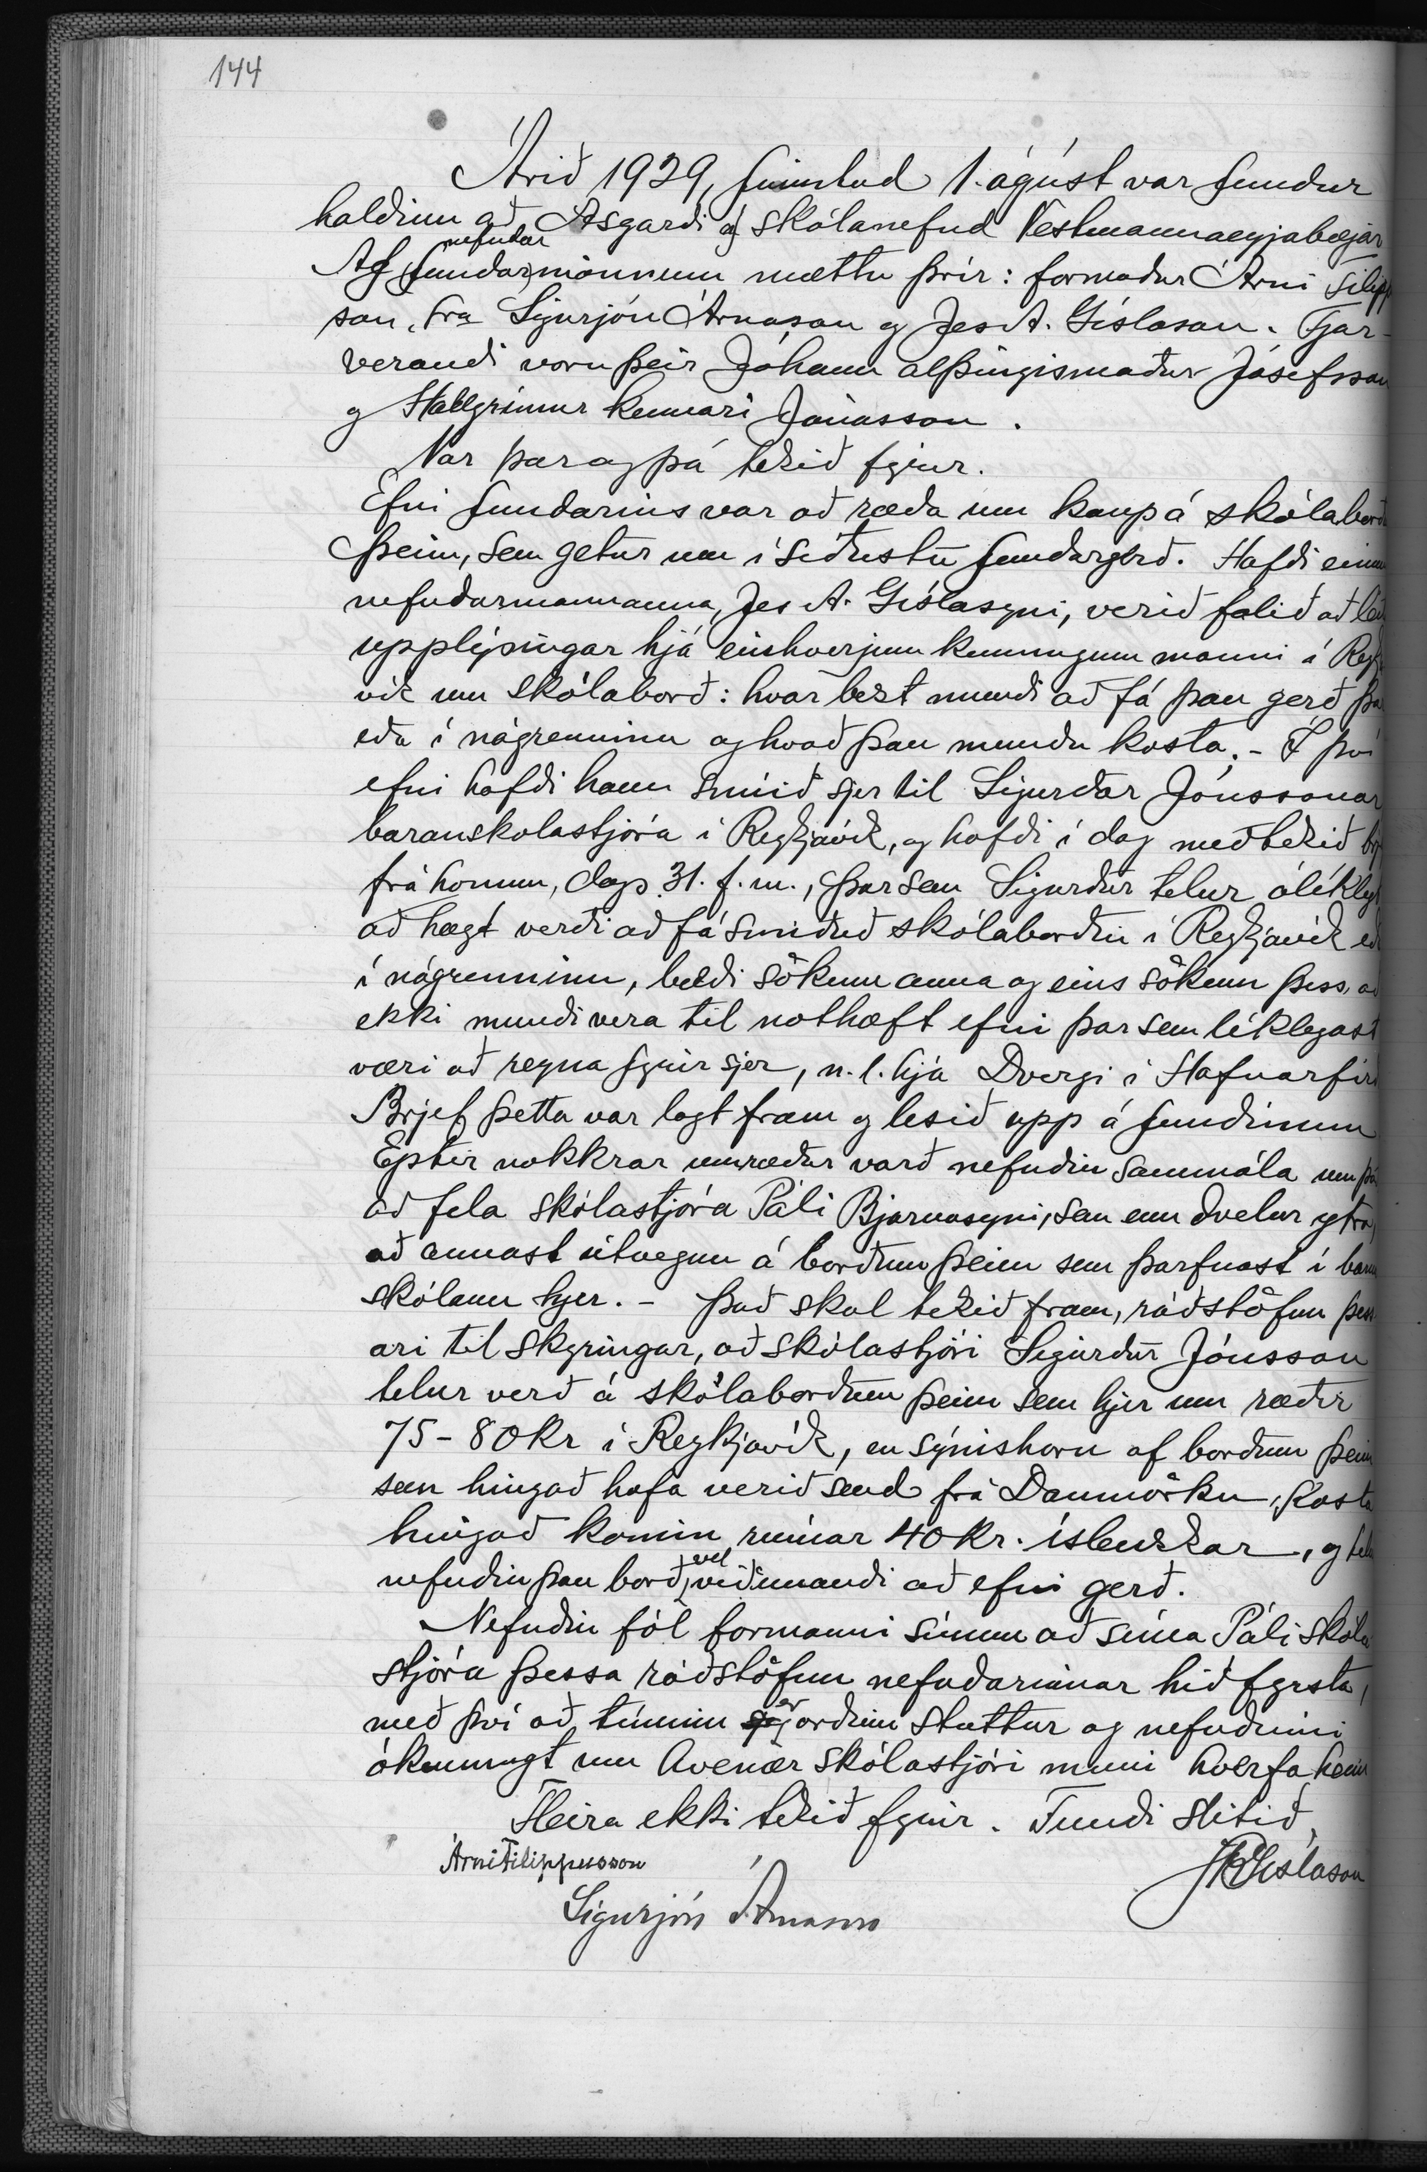 144
Árið 1929, fimmtud 1. ágúst var fundur
haldinn að Ásgarði af skólanefnd Vestmannaeyjabæjar
nefndar
Af fundarmönnum mættu þrír: formaður Árni Filipp
son, sra Sigurjón Árnason og Jes A. Gíslason. Fjar-
verandi voru þeir Jóhann alþingismaður Jósefsson
og Hallgrímur kennari Jónasson.
Var þar og þá tekið fyrir.
Efni fundarins var að ræða um kaup á skólaborð
þeim, sem getur um í síðustu fundargerð. Hafði einum
nefndarmannanna, Jes A. Gíslasyni, verið falið að leit
upplýsingar hjá einshverjum kunnugum manni í Reykj
vík um skólaborð: hvar bezt mundi að fá þau gerð þar
eða í nágrenninu og hvað þau mundu kosta. - Í því
efni hafði hann snúið sjer til Sigurðar Jónssonar
baranskolastjóra í Reykjavík, og hafði í dag meðtekið brj
frá honum, dags 31. f.m., þar sem Sigurður telur ólíklegt
að hægt verði að fá smíðuð skólaborðin í Reykjavík eð
í nágrenninu, bæði sökum anna og eins sökum þess, að
ekki mundi vera til nothæft efni þar sem líklegast
væri að reyna fyrir sjer, n.l. hjá Dvergi í Hafnarfir
Brjef þetta var lagt fram og lesið upp á fundinum
Eptir nokkrar umræður varð nefndin sammála um þá
að fela skólastjóra Páli Bjarnasyni, sem enn dvelur ytra,
að annast útvegun á borðum þeim sem þarfnast í barna
skólann hjer. - Það skal tekið fram, ráðstöfun þess
ari til skyringar, að skólastjóri Sigurður Jónsson
telur verð á skólaborðum þeim sem hjer um ræðir
75-80 kr í Reykjavík, en sýnishorn af borðum þeim
sem hingað hafa verið send frá Danmörku, kosta
hingað komin rúmar 40 kr. íslenzkar, og tel
vel
nefndin þau borð, viðunandi að efni gerð.
Nefndin fól formanni sínum að síma Páli skóla
stjóra þessa ráðstöfun nefndarinnar hið fyrsta,
er
með því að tíminn orðinn stuttur og nefndinni
ókunnugt um hvenær skólastjóri muni hverfa heim
Fleira ekki tekið fyrir. Fundi slitið.
Árni Filippusson
JAGíslason
Sigurjón Árnason